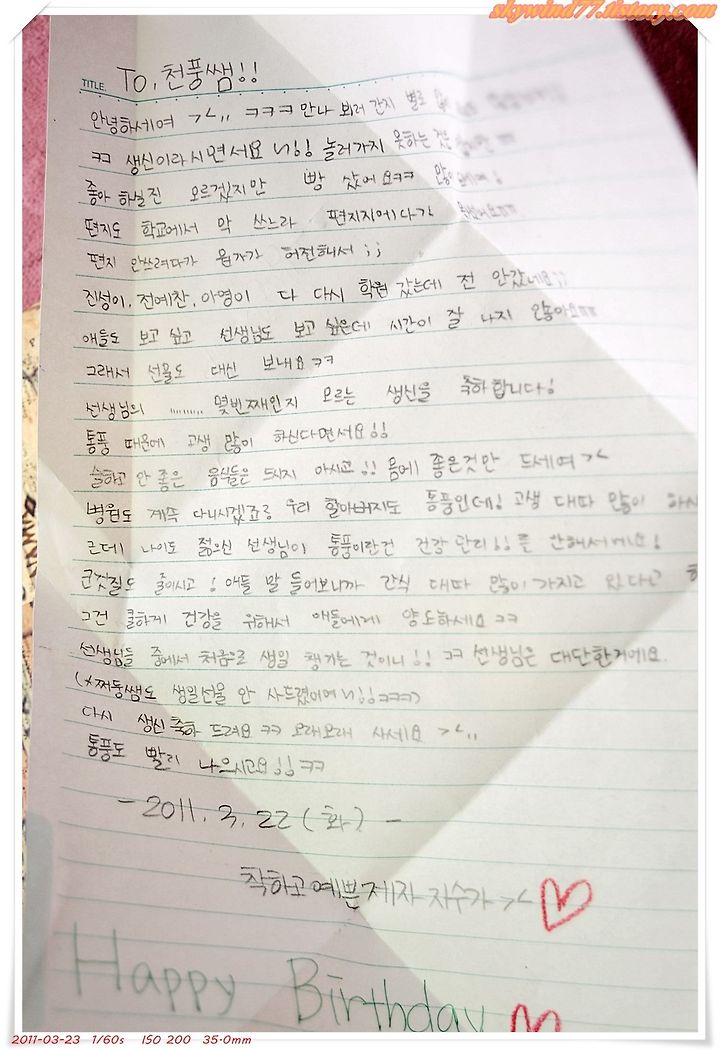 skywind77.tistory.com
TITLE. To. 천풍쌤!!
안녕하세여 ㅋㅋㅋ 만나 뵈러 간지 별로
ㅋㅋ 생신이라시면서요 !! 놀러가지 못하는 것
좋아 하실진 모르겠지만 빵 샀어요ㅋㅋ
편지도 학교에서 막 쓰느라 편지지에다가
편지 안쓰려다가 뭔가가 허전해서 ;;
진성이, 전예찬, 아영이 다 다시 학원 갔는데 전 안갔네요;;
애들도 보고 싶고 선생님도 보고 싶은데 시간이 잘 나지 않아요ㅠㅠ
그래서 선물도 대신 보내요 ㅋㅋ
선생님의 .......... 몇번째인지 모르는 생신을 축하합니다!
통풍 때문에 고생 많이 하신다면서요!!
술하고 안 좋은 음식들은 드시지 마시고!! 몸에 좋은것만 드세여 ㅋㅋ
병원도 계속 다니시겠죠? 우리 할아버지도 통풍인데! 고생 대따 많이 하시
근데 나이도 젊으신 선생님이 통풍이란건 건강 관리!!를 안해서에요!
군것질도 줄이시고! 애들 말 들어보니까 간식 대따 많이 가지고 있다고
그건 쿨하게 건강을 위해서 애들에게 양도하세요 ㅋㅋ
선생님들 중에서 처음으로 생일 챙기는 것이니!! ㅋㅋ 선생님은 대단한거에요.
(*쩌둥쌤도 생일선물 안 사드렸이여 !!ㅋㅋㅋ)
다시 생신 축하 드려요 ㅋㅋ 오래오래 사세요
통풍도 빨리 나으시고요!! ㅋㅋ
- 2011. 3. 22 (화) -
착하고 예쁜 제자 지수가
Happy Birthday
2011-03-23 1/60s ISO 200 35.0mm